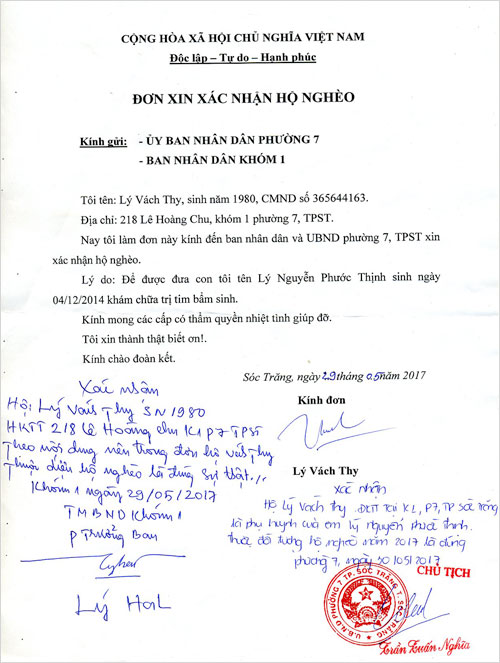 CỘNG HÒA XÃ HỘI CHỦ NGHĨA VIỆT NAM
Độc lập – Tự do – Hạnh phúc
ĐƠN XIN XÁC NHẬN HỘ NGHÈO
Kính gửi: - ỦY BAN NHÂN DÂN PHƯỜNG 7
- BAN NHÂN DÂN KHÓM 1
Tôi tên: Lý Vách Thy, sinh năm 1980, CMND số 365644163.
Địa chỉ: 218 Lê Hoàng Chu, khóm 1 phường 7, TPST.
Nay tôi làm đơn này kính đến ban nhân dân và UBND phường 7, TPST xin
xác nhận hộ nghèo.
Lý do: Để được đưa con tôi tên Lý Nguyễn Phước Thịnh sinh ngày
04/12/2014 khám chữa trị tim bẩm sinh.
Kính mong các cấp có thẩm quyền nhiệt tình giúp đỡ.
Tôi xin thành thật biết ơn!.
Kính chào đoàn kết.
Sóc Trăng, ngày 29 tháng 05 năm 2017
Kính đơn
Lý Vách Thy
Xác nhận
Hộ: Lý Vách Thy SN 1980
HKTT 218 Lê Hoàng Chu K1 P7 TPST
Theo nội dung nêu trong đơn hộ Vách Thy
Thuộc diện hộ nghèo là đúng sự thật./.
Khóm 1 ngày 29/05/2017
TMBND Khóm 1
P Trưởng Ban
Lý
Xác nhận
Hộ Lý Vách Thy. tại K1, P7, TP Sóc Trăng
là phụ huynh của em Lý Nguyễn Phước Thịnh.
thuộc đối tượng hộ nghèo năm 2017 là đúng
phường 7, ngày 30/05/2017
CHỦ TỊCH
U.B.N.D PHƯỜNG 7 TP. SÓC TRĂNG T. SÓC TRĂNG
Trần Xuân Nghĩa